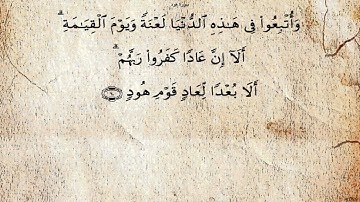 وَأُتْبِعُوا۟ فِى هَٰذِهِ ٱلدُّنْيَا لَعْنَةً وَيَوْمَ ٱلْقِيَٰمَةِ ۗ
أَلَآ إِنَّ عَادًا كَفَرُوا۟ رَبَّهُمْ ۗ
أَلَا بُعْدًا لِّعَادٍ قَوْمِ هُودٍ ۝٦٠